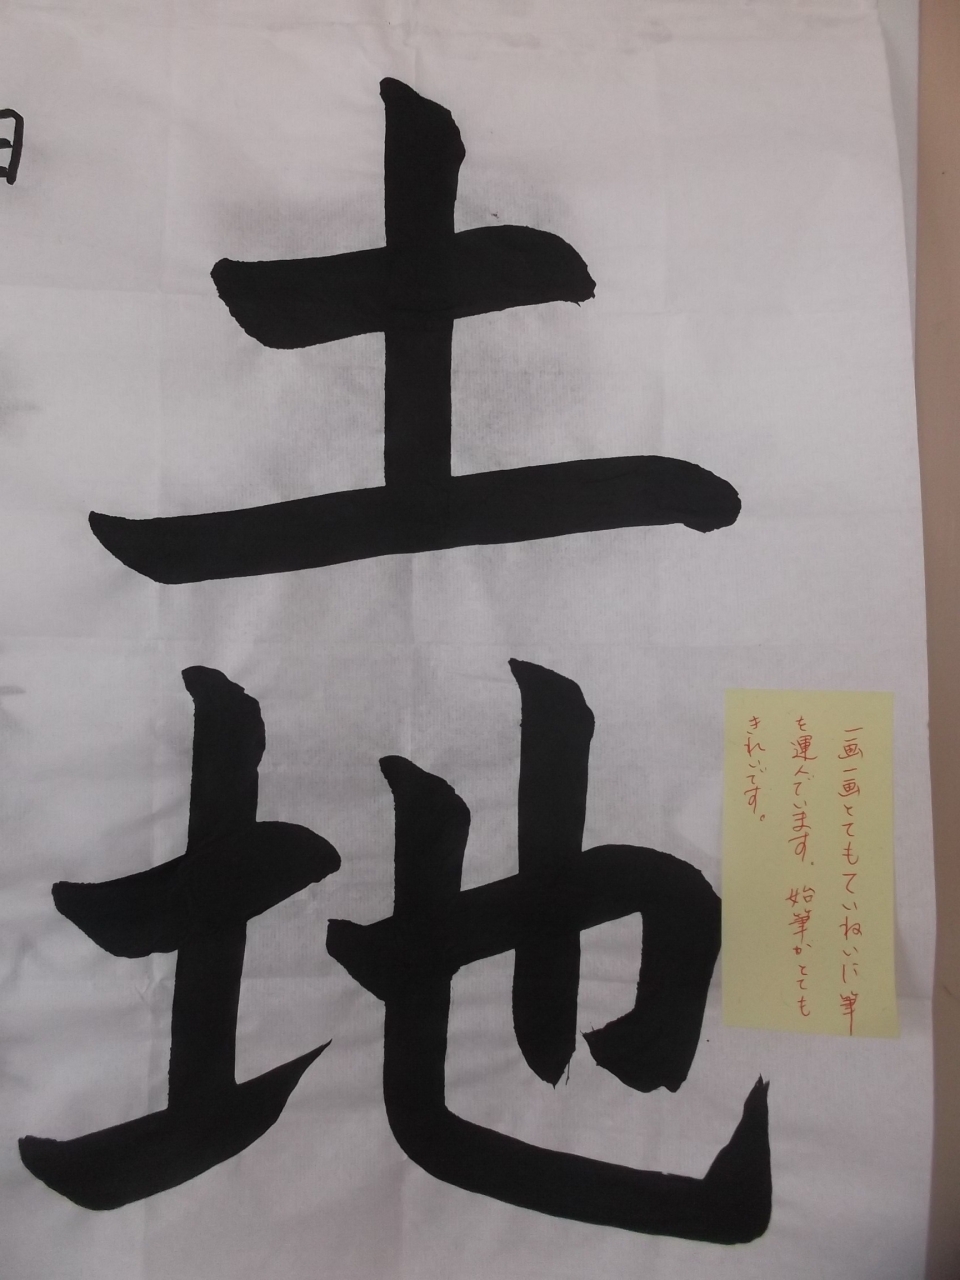 土地
一画一画とてもていねいに筆
を運んでいます。始筆がとても
きれいです。